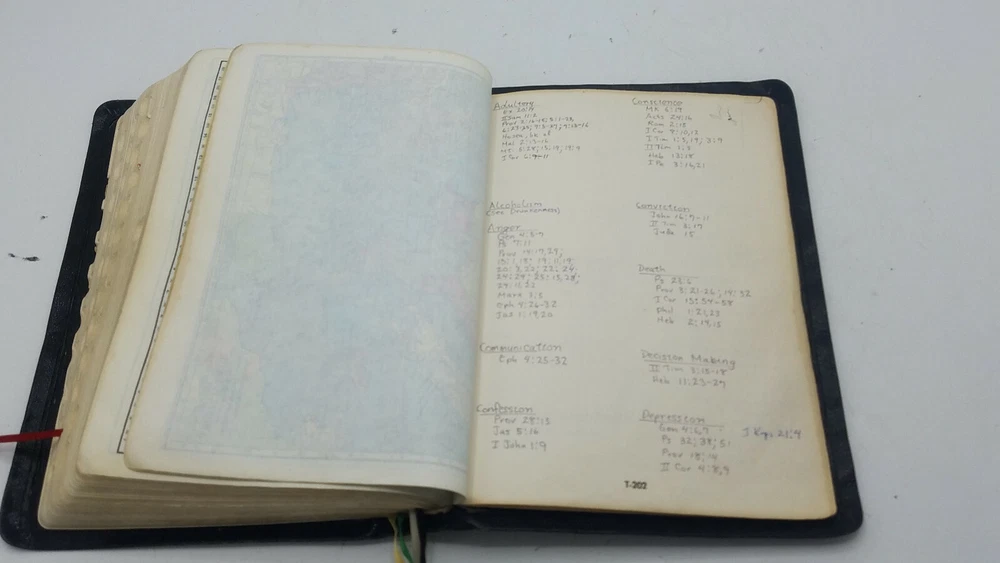 Adultery
Ex 20:14
II Sam 11:2
Mal 2:13-16
I Cor 6:9-11
Alcoholism
(See Drunkenness)
Anger
Gen 4:5-7
Ps 7:11
Prov 14:17,29;
15:1,18; 19:11,19;
20:3,22; 22:24;
24:29; 25:15,28;
29:11,22
Mark 3:5
Eph 4:26-32
Jas 1:19,20
Communication
Eph 4:25-32
Confession
Prov 28:13
Jas 5:16
I John 1:9
Conscience
Acts 24:16
Rom 2:15
I Tim 1:5,19; 3:9
II Tim 1:3
Heb 13:18
I Pe 3:16,21
Conviction
John 16:7-11
II Tim 3:17
Jude 15
Death
Ps 23:6
Prov 3:21-26; 14:32
I Cor 15:54-58
Phil 1:21,23
Heb 2:14,15
Decision Making
II Tim 3:15-18
Heb 11:23-27
Depression
Gen 4:6,7
Ps 32; 38; 51
Prov 18:14
II Cor 4:8,9
T-202